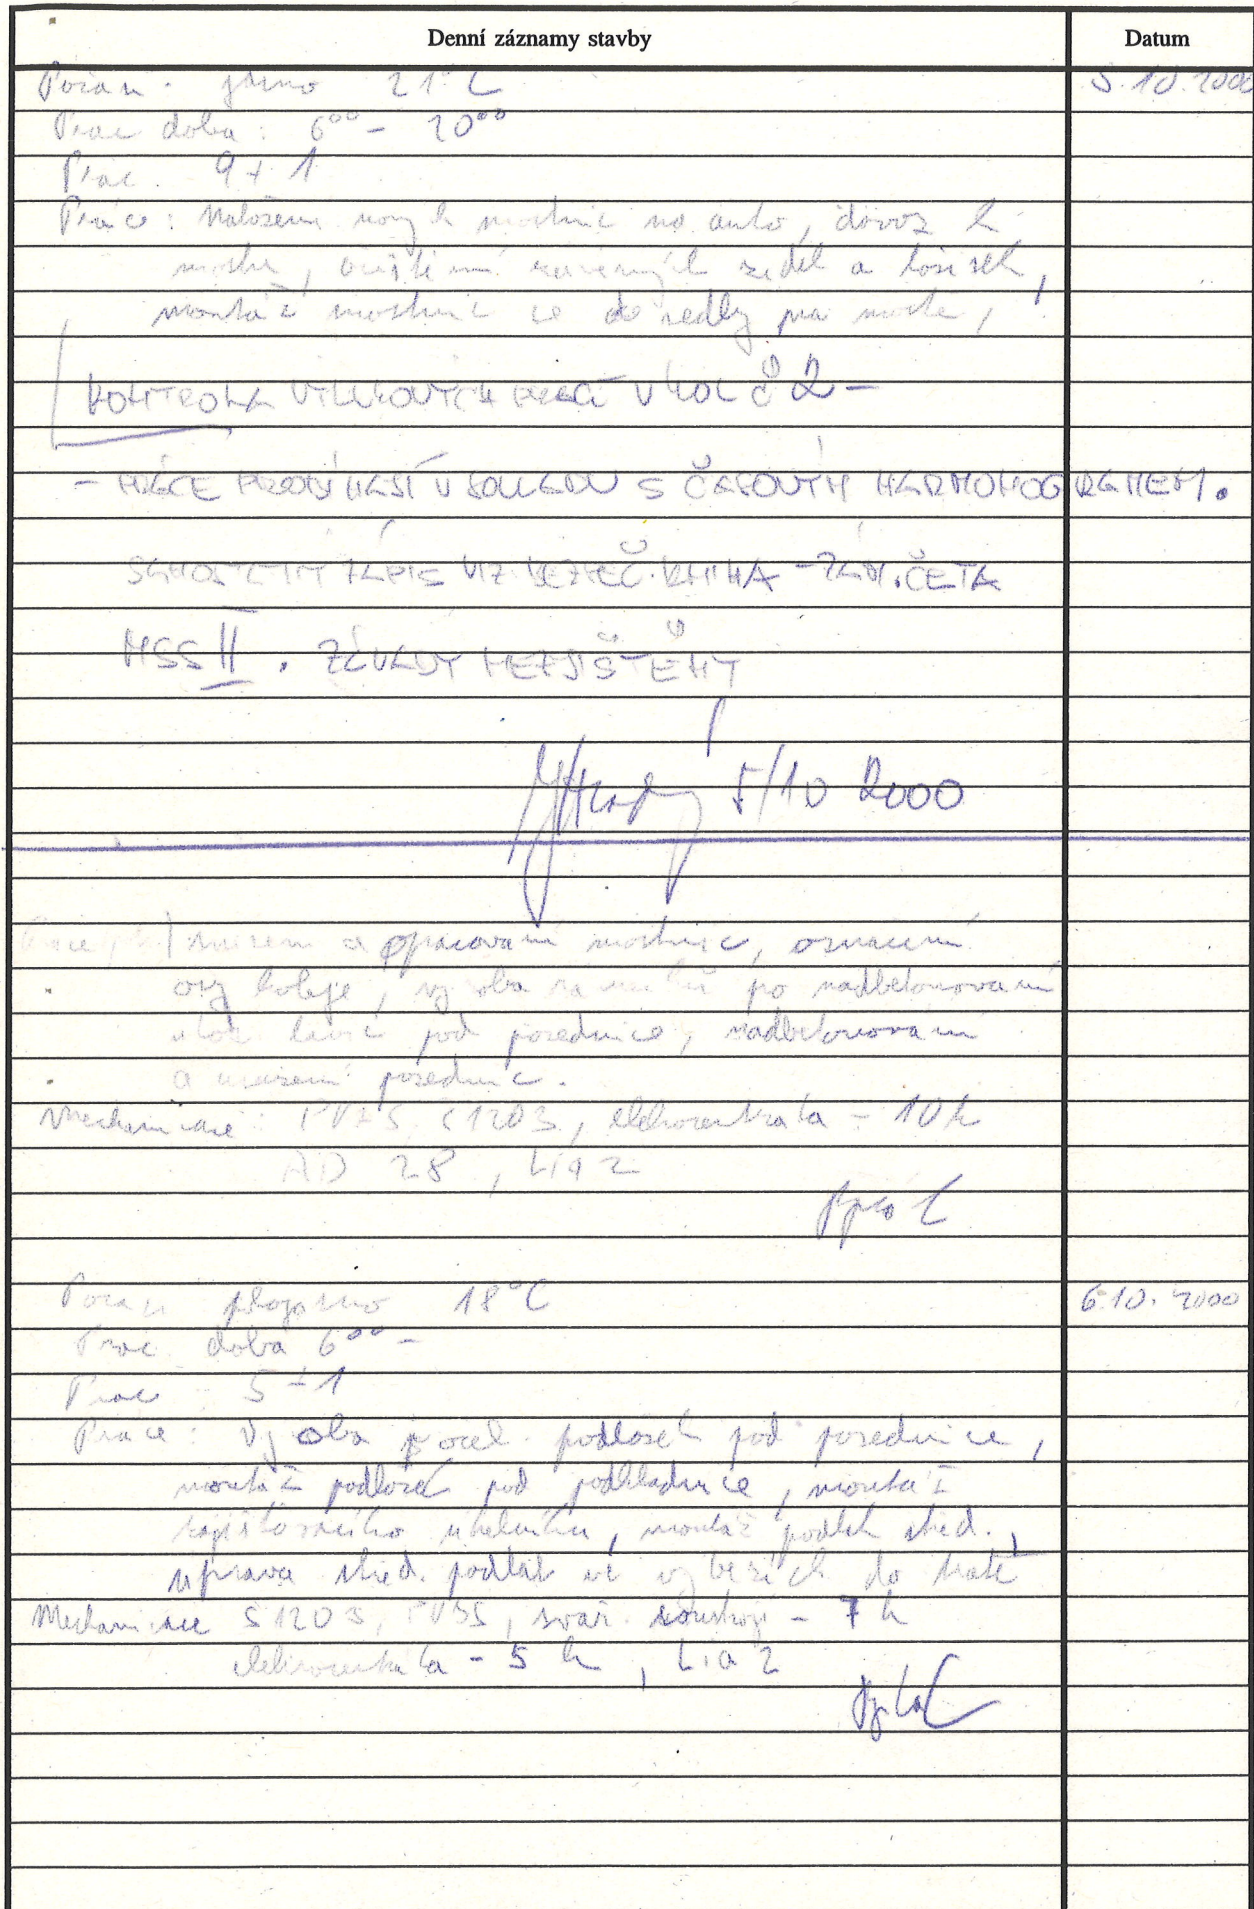 Denní záznamy stavby Datum
Počasí: jasno 21°C 5.10.2000
Prac doba: 6⁰⁰ - 20⁰⁰
Prac. 9+1
Práce: Naložení nových mostnic na auto, dovoz k
mostu, očištění sedel a ložisek,
montáž mostnic do sedly na mostě,
KONTROLA VÝLUKOVÝCH PRACÍ V KOL Č 2 -
- PRÁCE PROBÍHAJÍ V SOULADU S ČASOVÝM HARMONOGRAMEM.
SAMOSTATNÝ ZÁPIS VIZ BEZPEČ. KNIHA - ZÁM. ČETA
MSS II. ZÁVADY NEZJIŠTĚNY
5/10 2000
a opracování mostnic, označení
osy koleje, výroba po nadbetonování
pod pozednice, nadbetonování
a osazení pozednic.
Mechanizace: PV3S, S1203, elektrocentrála - 10 h
AD 28, Liaz
Počasí polojasno 18°C 6.10.2000
Prac. doba 6⁰⁰ -
Prac 5+1
Práce: Výroba ocel. podložek pod pozednice,
montáž podložek pod podkladnice, montáž
zajišťovacího úhelníku, montáž podlah střed.,
úprava střed. podlah ve výbězích do tratě
Mechanizace S1203, PV3S, svař. soustrojí - 7 h
elektrocentrála - 5 h, Liaz